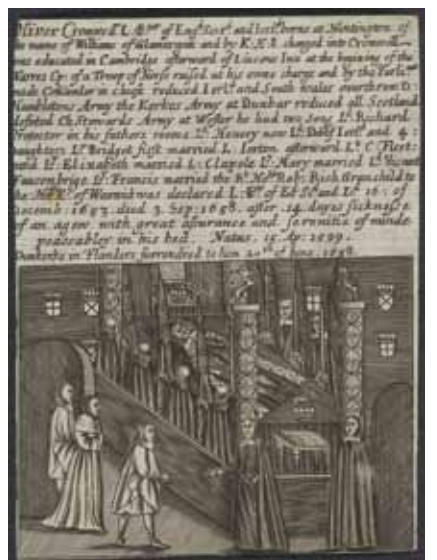 Oliver Cromwell L: Protr of Engd Scotd and Ireld borne at Huntington of
the name of Williams of Glamorgan and by K.H.8 changed into Cromwell
was educated in Cambridge afterward of Lincons Inn at the begining of the
Warres Cp: of a Troop of Horse raised at his owne charge and by the Parlt
made Comander in cheife reduced Irld and South wales overthrew D:
Hambletons Army the Kerkes Army at Dunbar reduced all Scotland
defeted Ch. Stewards Army at Woster he had two Sons Ld: Richard
Protector in his fathers roome Ld: Henery now Ld: Irld and 4:
daughters Ly: Bridget first married L: Ireton afterward Ld: C Fleet:
wood Ly: Elizabeth married L: Clapole Ly: Mary married Ld: Vicount
Fauconbrige Ly: Francis married the Rt Honble Rob: Rich Granchild to
the of Warwick was declared L: of Ed: Scd and Ld: 16: of
Decemb: 1653 died 3. Sep: 1658. after .14 dayes sicknesse
of an agew with great assurance and serenitie of minde
peaceabley in his bed. Natus. 15. Ap: 1599.
Dunkerke in Flanders surrendred to him 20th of June 1658.